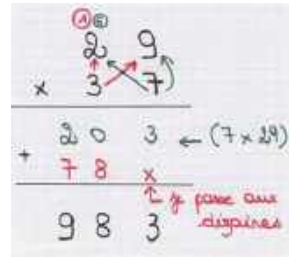 6
2 9
× 3 7
2 0 3 ← (7 × 29)
+ 7 8 x
je passe aux
dizaines
9 8 3